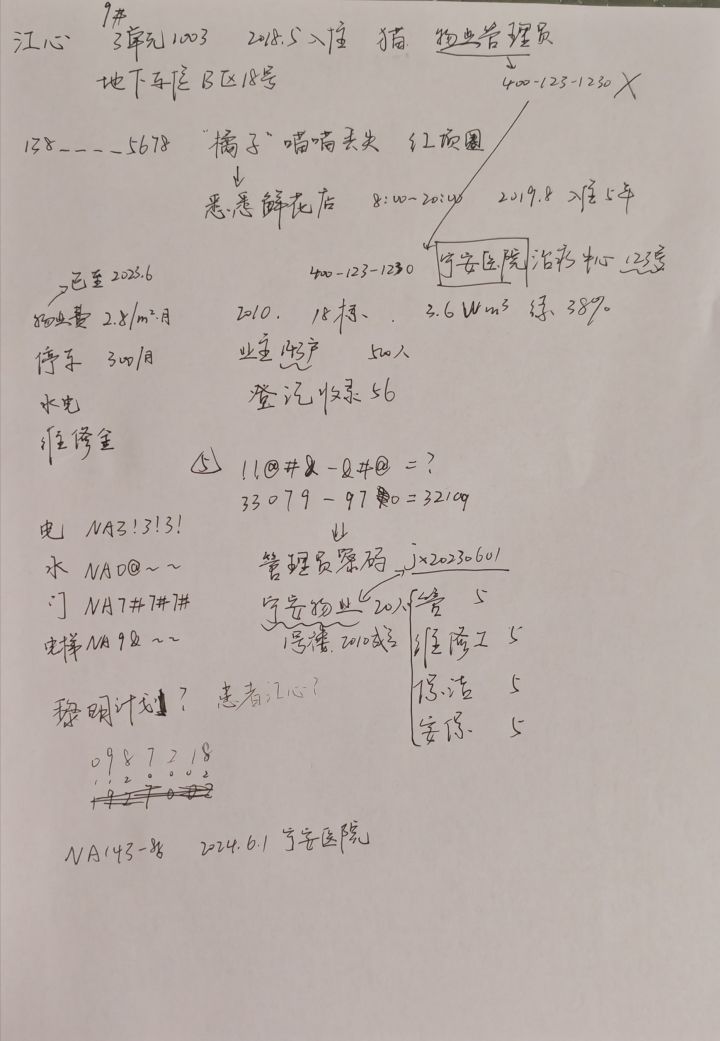 9#
江心 3单元1003 2018.5入住 猫 物业管理员
地下车位B区18号 400-123-1230 X
138----5678 "橘子"喵喵丢失 红项圈
悉悉鲜花店 8:00-20:00 2019.8 入住5年
已至2023.6 400-123-1230 宁安医院 治疗中心 123房
物业费 2.8/m²·月 2010. 18栋. 3.6Wm³ 绿38%
停车 300/月 业主143户 500人
水电 登记收录56
维修金
⑤ !!@#& - &#@ = ?
33079 - 970 = 32109
电 NA3!3!3! 管理员密码 jx20230601
水 NA0@~~ 宁安物业 20人 管 5
门 NA7#7#7# 1号楼.2010成立 维修工 5
电梯 NA9&~~ 保洁 5
黎明计划? 患者江心? 安保 5
0987218
1120002
NA143- 2024.6.1 宁安医院